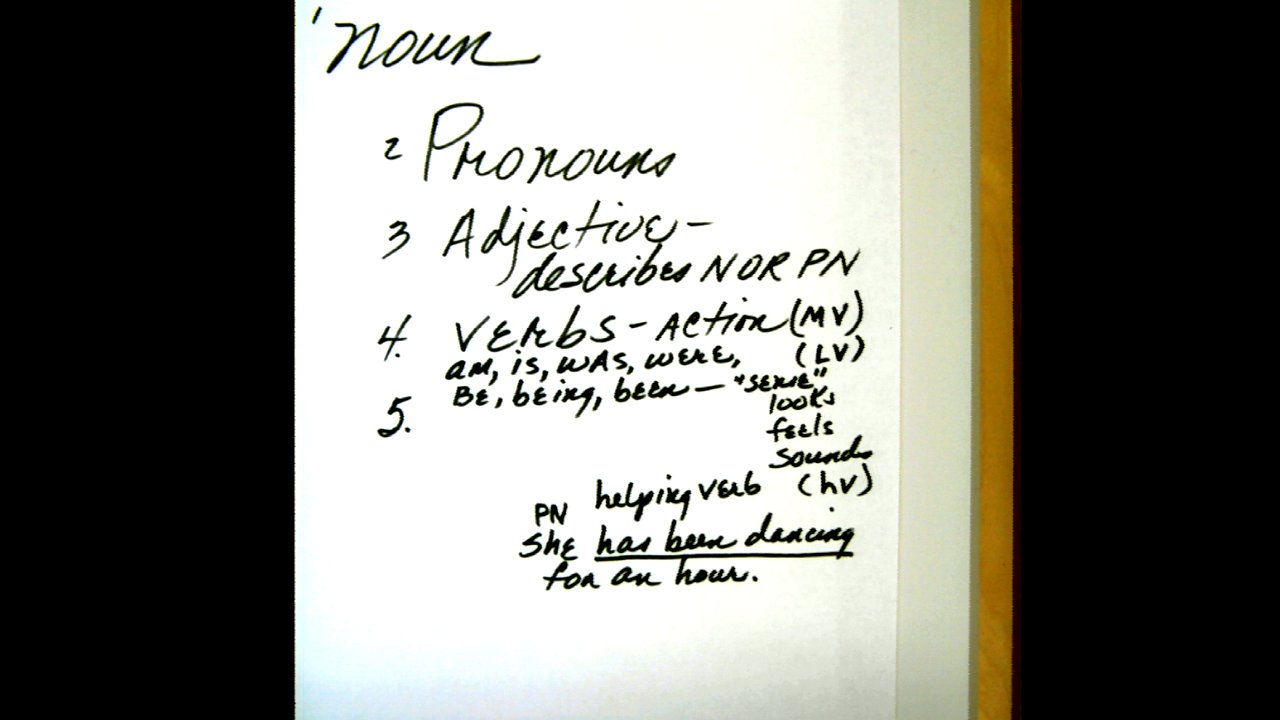 1 noun
2 Pronouns
3 Adjective -
describes N OR PN
4. Verbs - Action (MV)
am, is, was, were, (LV)
Be, being, been - "sense"
looks
5.
feels
sounds
helping verb (hv)
PN
She has been dancing
for an hour.